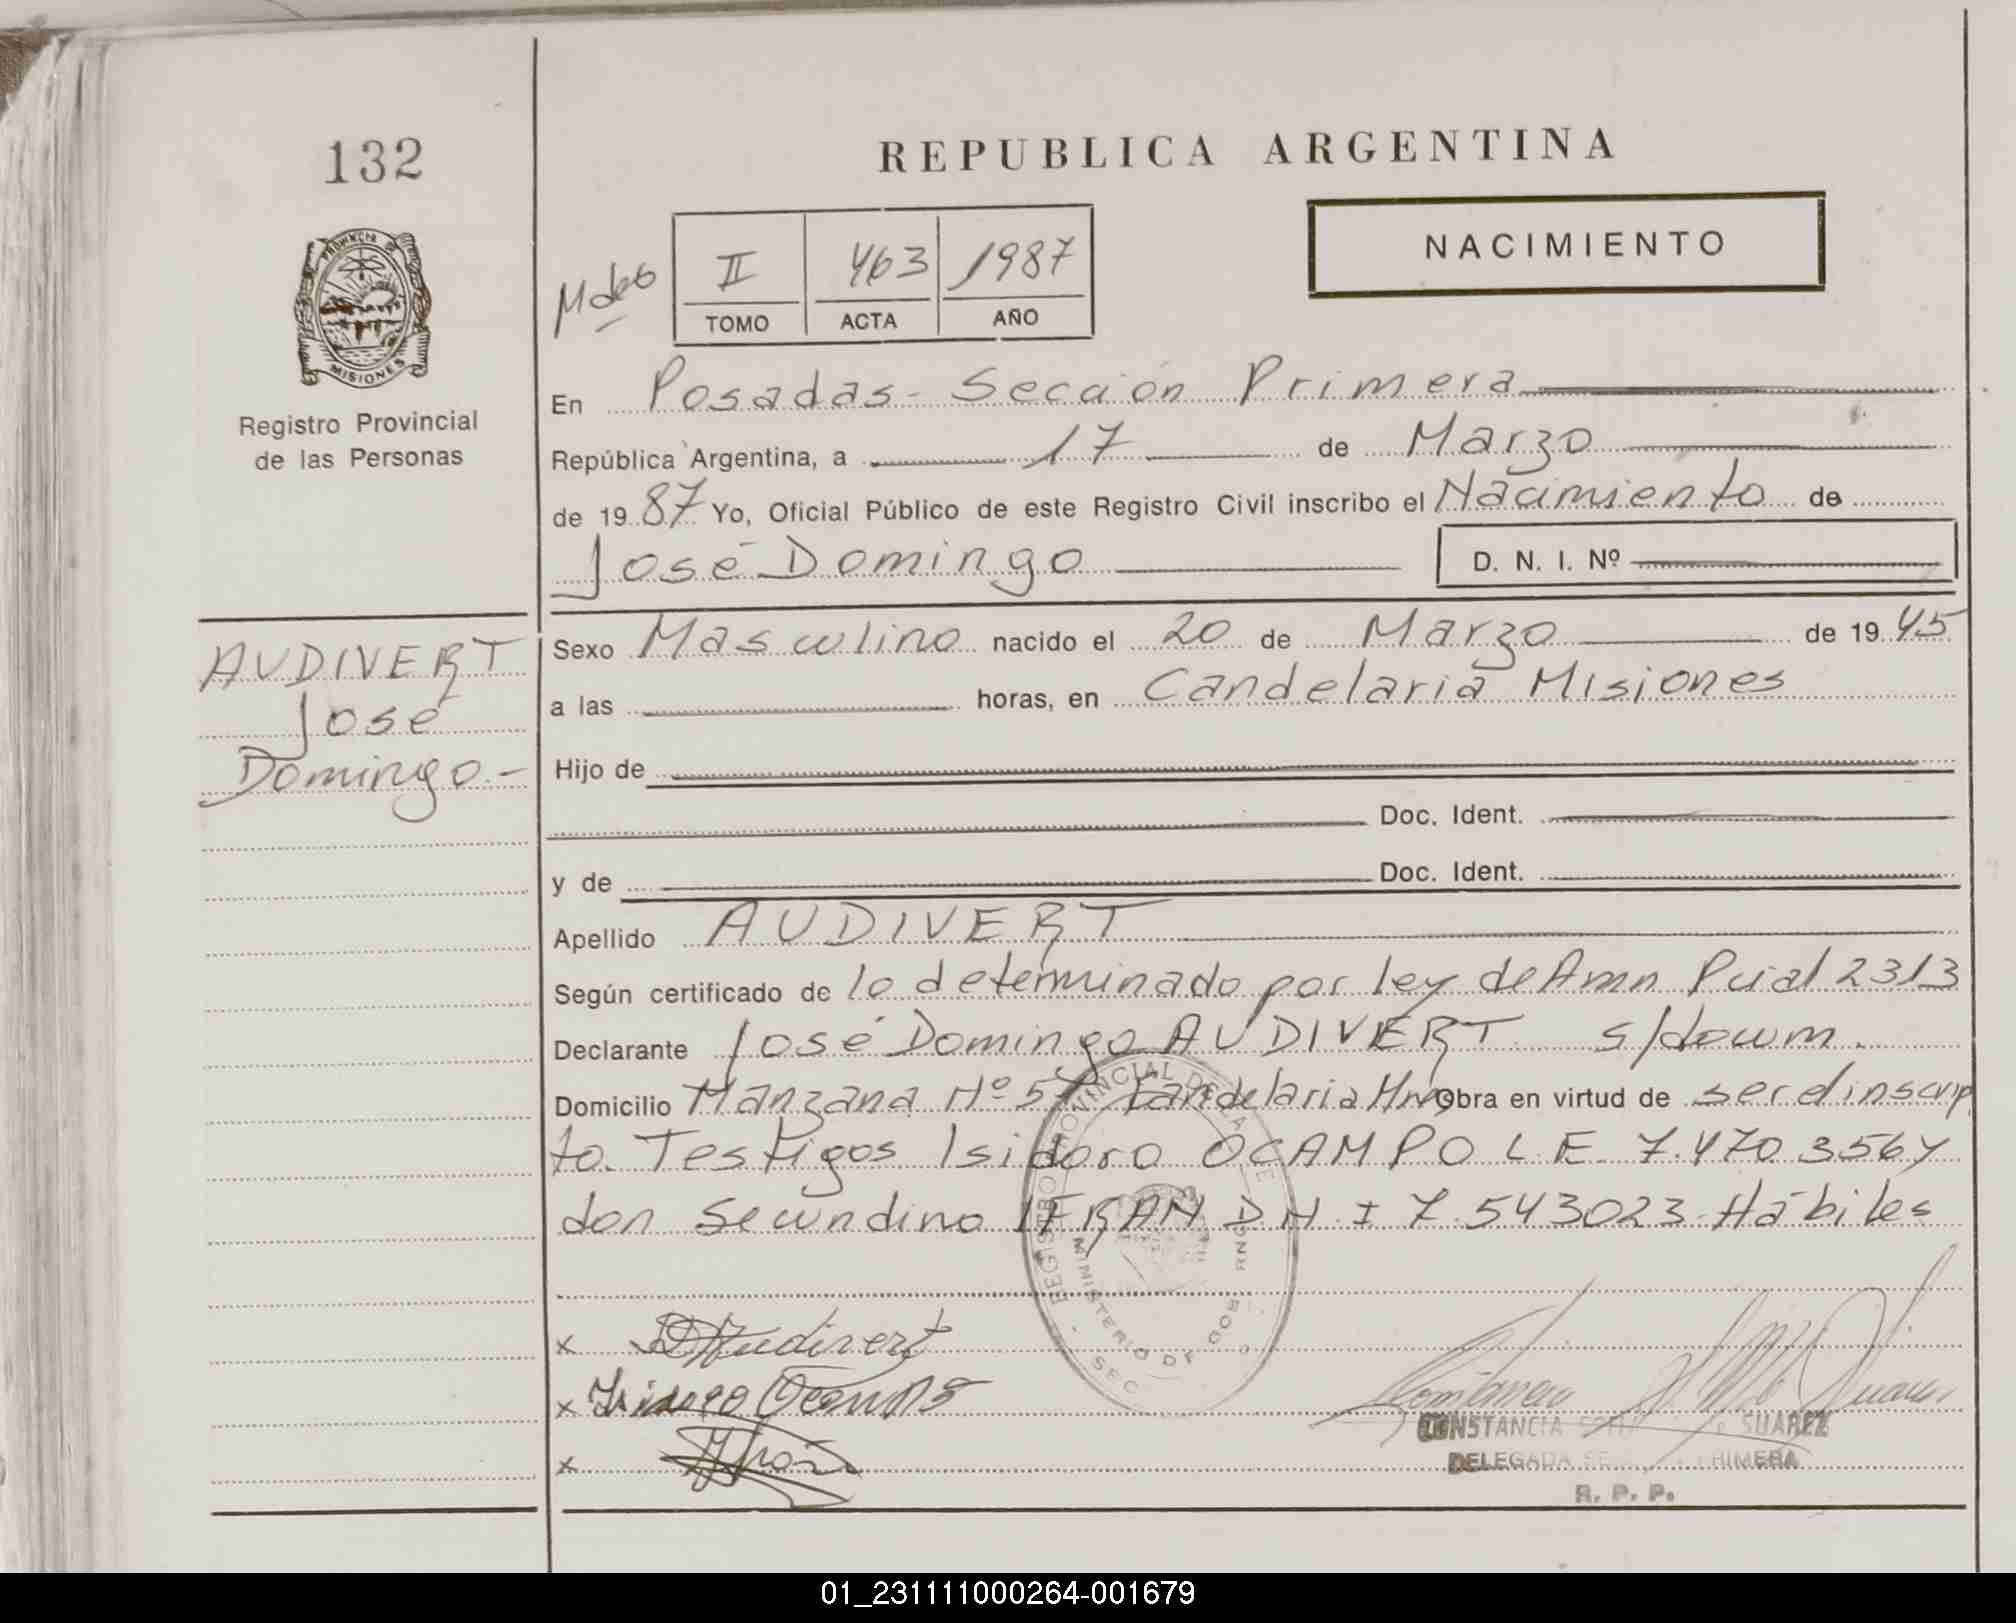 132
REPUBLICA ARGENTINA
NACIMIENTO
II 463 1987
TOMO ACTA AÑO
PROVINCIA DE
MISIONES
Registro Provincial
de las Personas
En Posadas - Sección Primera
República Argentina, a 17 de Marzo
de 19 87 Yo, Oficial Público de este Registro Civil inscribo el Nacimiento de
José Domingo D. N. I. Nº
AUDIVERT
José
Domingo.-
Sexo Masculino nacido el 20 de Marzo de 19 45
a las horas, en Candelaria Misiones
Hijo de
Doc. Ident.
y de Doc. Ident.
Apellido AUDIVERT
Según certificado de lo determinado por ley de Amn Pcial 2313
Declarante José Domingo AUDIVERT s/docum.
Domicilio Manzana Nº 57 Candelaria Mnes Obra en virtud de ser el inscrip
to. Testigos Isidoro OCAMPO L E 7.470.356 y
don Secundino IFRAN D N I 7.543023 Hábiles
REGISTRO PROVINCIAL DE LA
MINISTERIO DE GOB
SEC
x Audivert
x Isidoro Ocampo
x Ifrán
CONSTANCIA SUAREZ
DELEGADA PRIMERA
R. P. P.
01_231111000264-001679